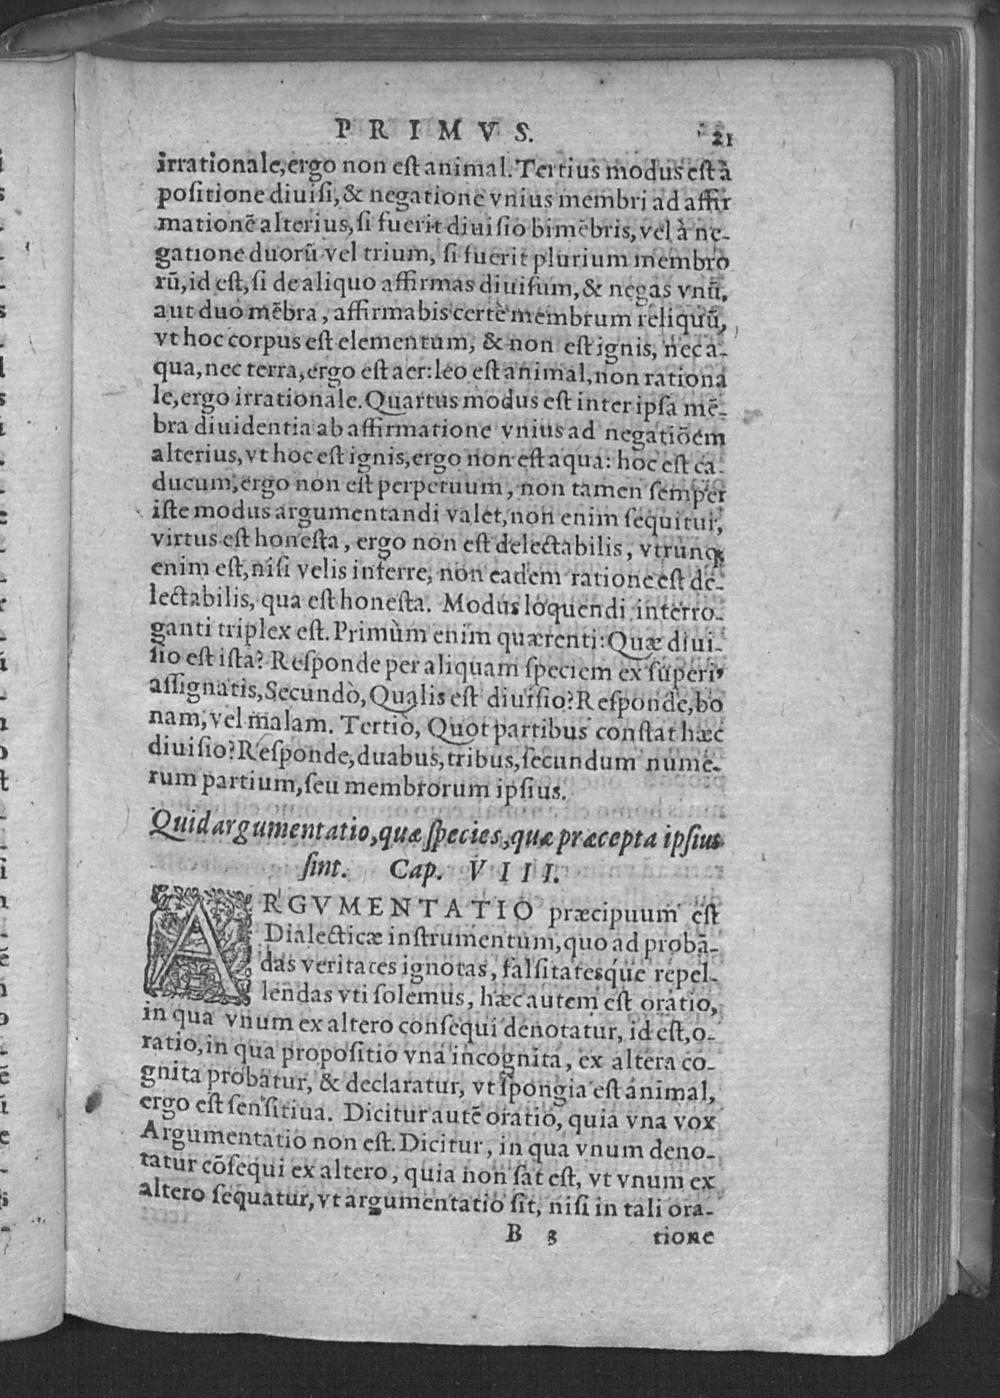 PRIMVS. 21
irrationale,ergo non est animal.Tertius modus est à
positione diuisi,& negatione vnius membri ad affir
mationẽ alterius,si fuerit diuisio bimẽbris,vel à ne-
gatione duorũ vel trium, si fuerit plurium membro
rũ,id est,si de aliquo affirmas diuisum,& negas vnũ,
aut duo mẽbra, affirmabis certè membrum reliquũ,
vt hoc corpus est elementum, & non est ignis, nec a-
qua,nec terra,ergo est aer:leo est animal,non rationa
le,ergo irrationale.Quartus modus est inter ipsa mẽ-
bra diuidentia ab affirmatione vnius ad negatiõem
alterius,vt hoc est ignis,ergo non est aqua: hoc est ca-
ducum,ergo non est perpetuum, non tamen semper
iste modus argumentandi valet,non enim sequitur,
virtus est honesta, ergo non est delectabilis, vtrunq;
enim est,nisi velis inferre, non eadem ratione est de-
lectabilis, qua est honesta. Modus loquendi interro-
ganti triplex est. Primùm enim quærenti:Quæ diui-
sio est ista? Responde per aliquam speciem ex superi,
assignatis,Secundò,Qualis est diuisio?Responde,bo
nam,vel malam. Tertiò, Quot partibus constat hæc
diuisio?Responde,duabus,tribus,secundum nume-
rum partium,seu membrorum ipsius.
Quid argumentatio,quæ species,quæ præcepta ipsius
sint. Cap. VIII.
ARGVMENTATIO præcipuum est
Dialecticæ instrumentum,quo ad probã-
das veritates ignotas, falsitatesque repel-
lendas vti solemus, hæc autem est oratio,
in qua vnum ex altero consequi denotatur, id est,o-
ratio,in qua propositio vna incognita, ex altera co-
gnita probatur, & declaratur, vt spongia est animal,
ergo est sensitiua. Dicitur autẽ oratio, quia vna vox
Argumentatio non est. Dicitur, in qua vnum deno-
tatur cõsequi ex altero, quia non sat est, vt vnum ex
altero sequatur,vt argumentatio sit, nisi in tali ora-
B 3 tione